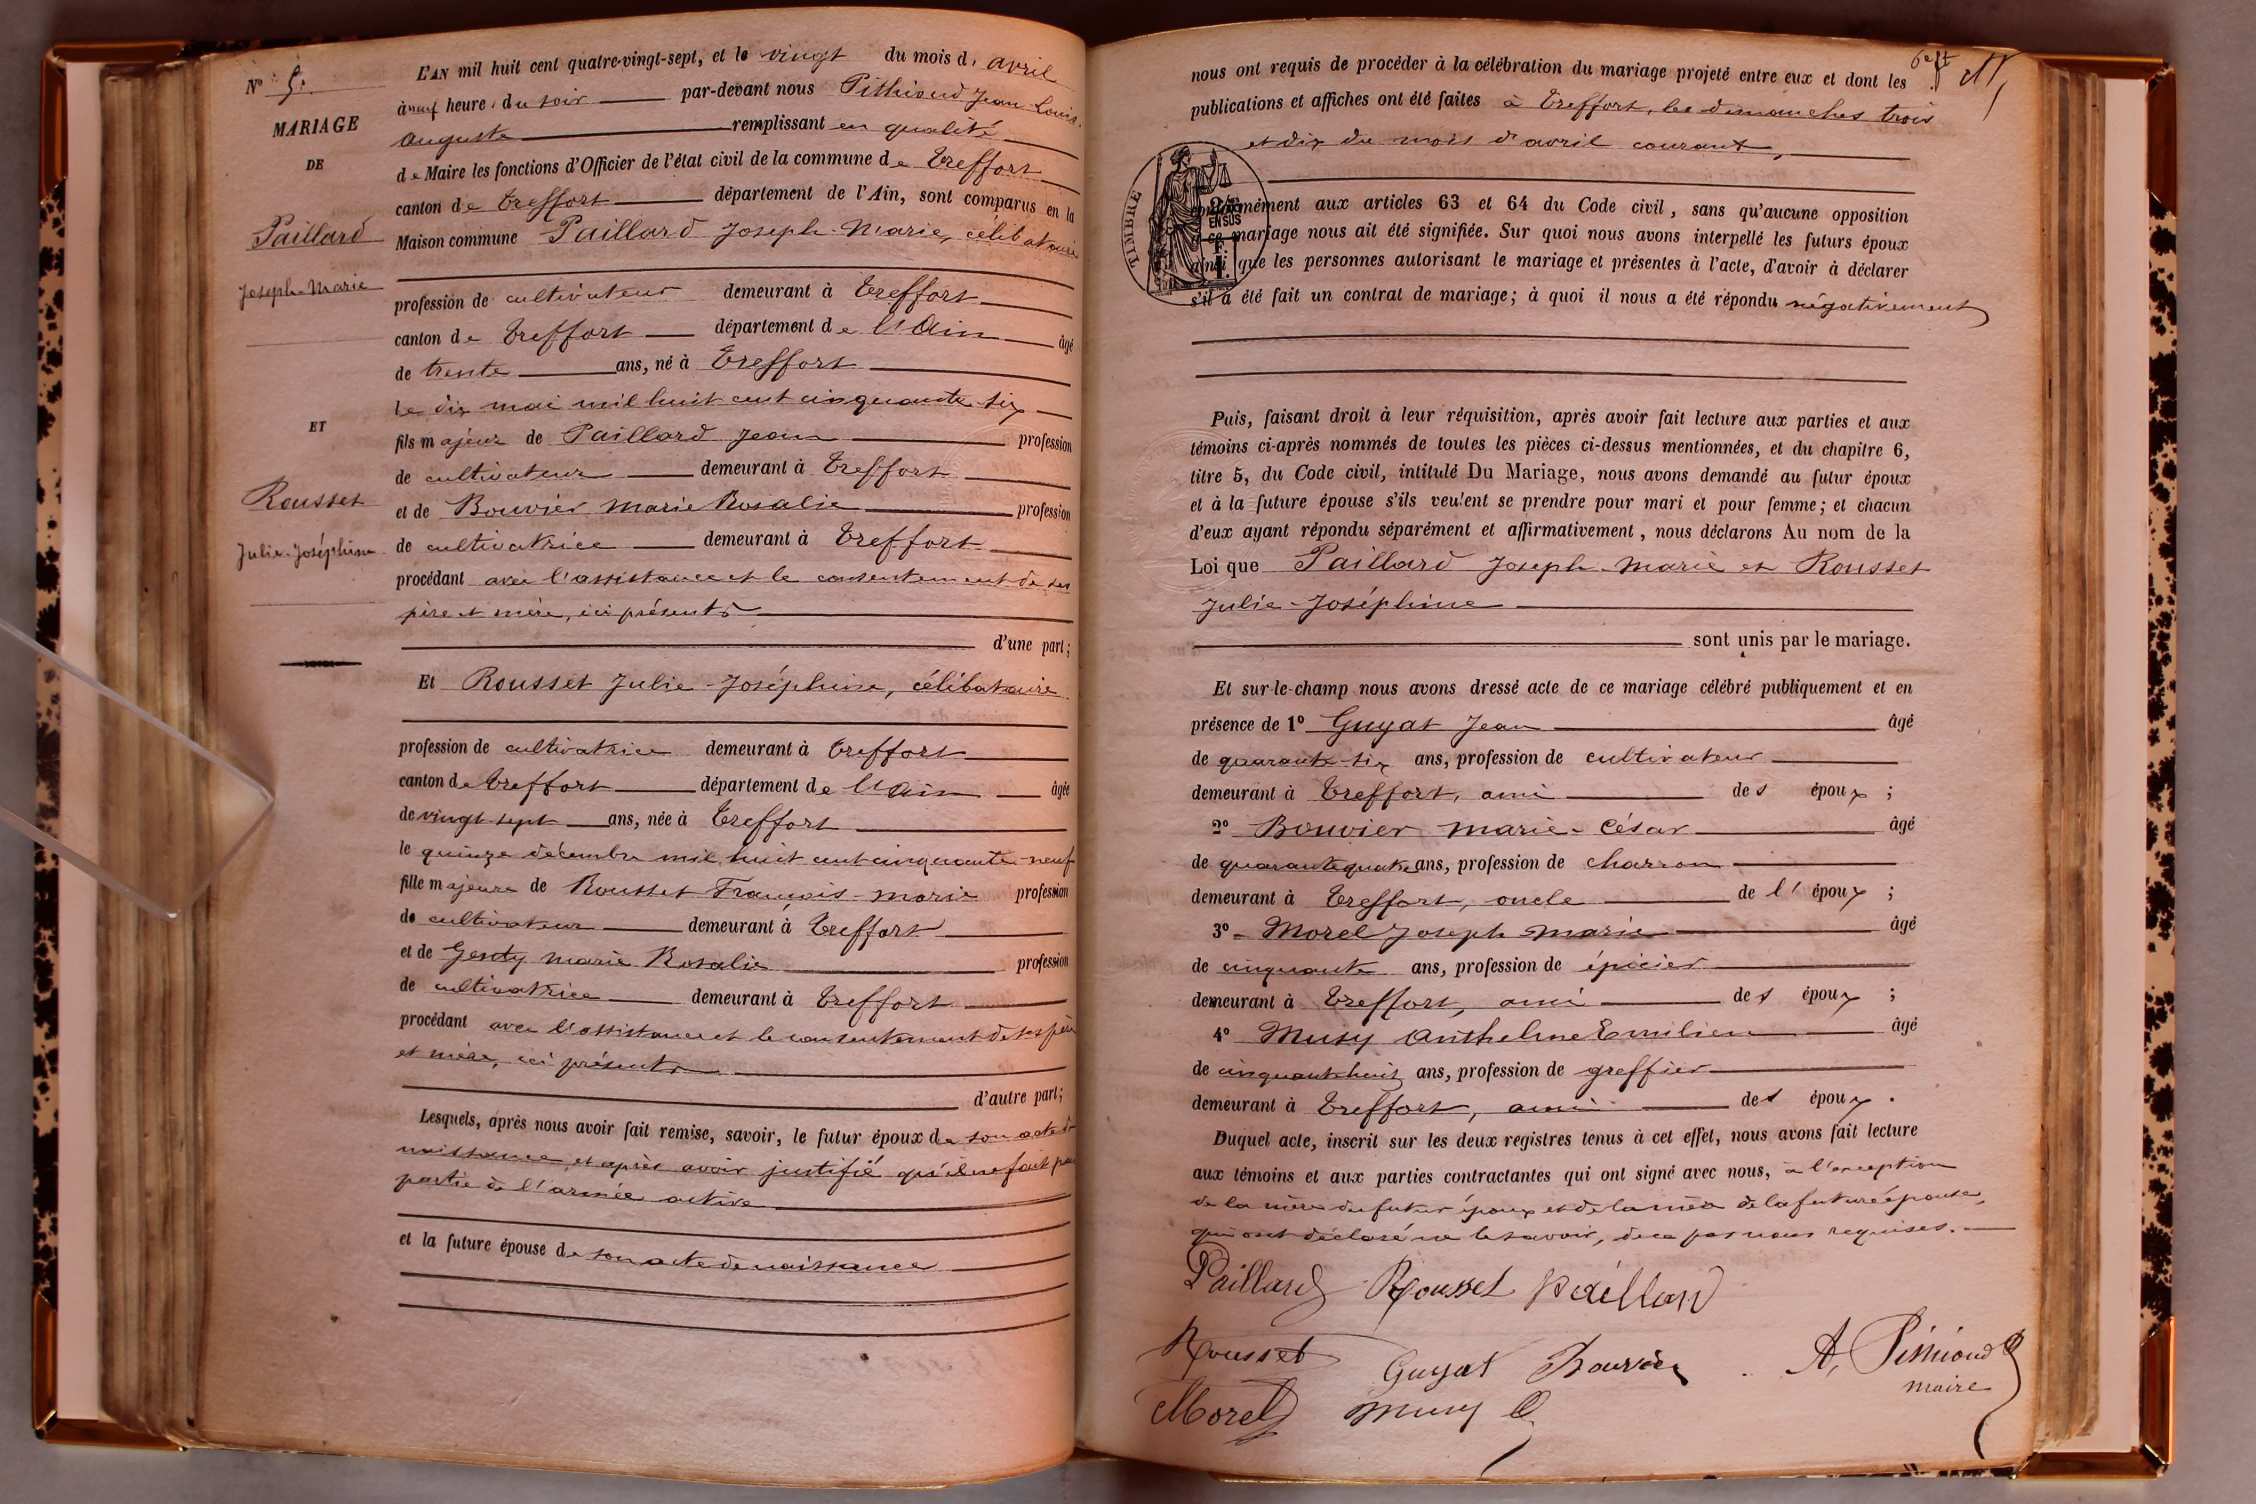 N° 5.
MARIAGE
DE
Paillard
Joseph-Marie
ET
Rousset
Julie-Joséphine
L'AN mil huit cent quatre-vingt-sept, et le vingt du mois d'avril
à neuf heure s du soir par-devant nous Pithioud Jean Louis
Auguste remplissant en qualité
de Maire les fonctions d'Officier de l'état civil de la commune de Treffort
canton de Treffort département de l'Ain, sont comparus en la
Maison commune Paillard Joseph-Marie, célibataire
profession de cultivateur demeurant à Treffort
canton de Treffort département de l'Ain âgé
de trente ans, né à Treffort
le dix mai mil huit cent cinquante six
fils majeur de Paillard Jean profession
de cultivateur demeurant à Treffort
et de Bouvier Marie Rosalie profession
de cultivatrice demeurant à Treffort
procédant avec l'assistance et le consentement de ses
père et mère, ici présents
d'une part;
Et Rousset Julie-Joséphine, célibataire
profession de cultivatrice demeurant à Treffort
canton de Treffort département de l'Ain âgée
de vingt sept ans, née à Treffort
le quinze décembre mil huit cent cinquante-neuf
fille majeure de Rousset François-Marie profession
de cultivateur demeurant à Treffort
et de Genty Marie Rosalie profession
de cultivatrice demeurant à Treffort
procédant avec l'assistance et le consentement de ses père
et mère, ici présents
d'autre part;
Lesquels, après nous avoir fait remise, savoir, le futur époux de son acte de
naissance, et après avoir justifié qu'il ne fait pas
partie de l'armée active
et la future épouse de son acte de naissance
nous ont requis de procéder à la célébration du mariage projeté entre eux et dont les
publications et affiches ont été faites à Treffort, les dimanches trois
et dix du mois d'avril courant,
TIMBRE
EN SUS
conformément aux articles 63 et 64 du Code civil, sans qu'aucune opposition
à ce mariage nous ait été signifiée. Sur quoi nous avons interpellé les futurs époux
ainsi que les personnes autorisant le mariage et présentes à l'acte, d'avoir à déclarer
s'il a été fait un contrat de mariage; à quoi il nous a été répondu négativement
Puis, faisant droit à leur réquisition, après avoir fait lecture aux parties et aux
témoins ci-après nommés de toutes les pièces ci-dessus mentionnées, et du chapitre 6,
titre 5, du Code civil, intitulé Du Mariage, nous avons demandé au futur époux
et à la future épouse s'ils veulent se prendre pour mari et pour femme; et chacun
d'eux ayant répondu séparément et affirmativement, nous déclarons Au nom de la
Loi que Paillard Joseph-Marie et Rousset
Julie-Joséphine
sont unis par le mariage.
Et sur-le-champ nous avons dressé acte de ce mariage célébré publiquement et en
présence de 1° Guyat Jean âgé
de quarante-six ans, profession de cultivateur
demeurant à Treffort, ami des époux;
2° Bouvier Marie-César âgé
de quarante quatre ans, profession de charron
demeurant à Treffort, oncle de l'époux;
3° Morel Joseph Marie âgé
de cinquante ans, profession de épicier
demeurant à Treffort, ami des époux;
4° Musy Anthelme Emilien âgé
de cinquante huit ans, profession de greffier
demeurant à Treffort, ami des époux.
Duquel acte, inscrit sur les deux registres tenus à cet effet, nous avons fait lecture
aux témoins et aux parties contractantes qui ont signé avec nous, à l'exception
de la mère du futur époux et de la mère de la future épouse,
qui ont déclaré ne le savoir, de ce par nous requises.
Paillard Rousset Paillard
Rousset Guyat Bouvier A. Pithioud
maire
Morel Musy